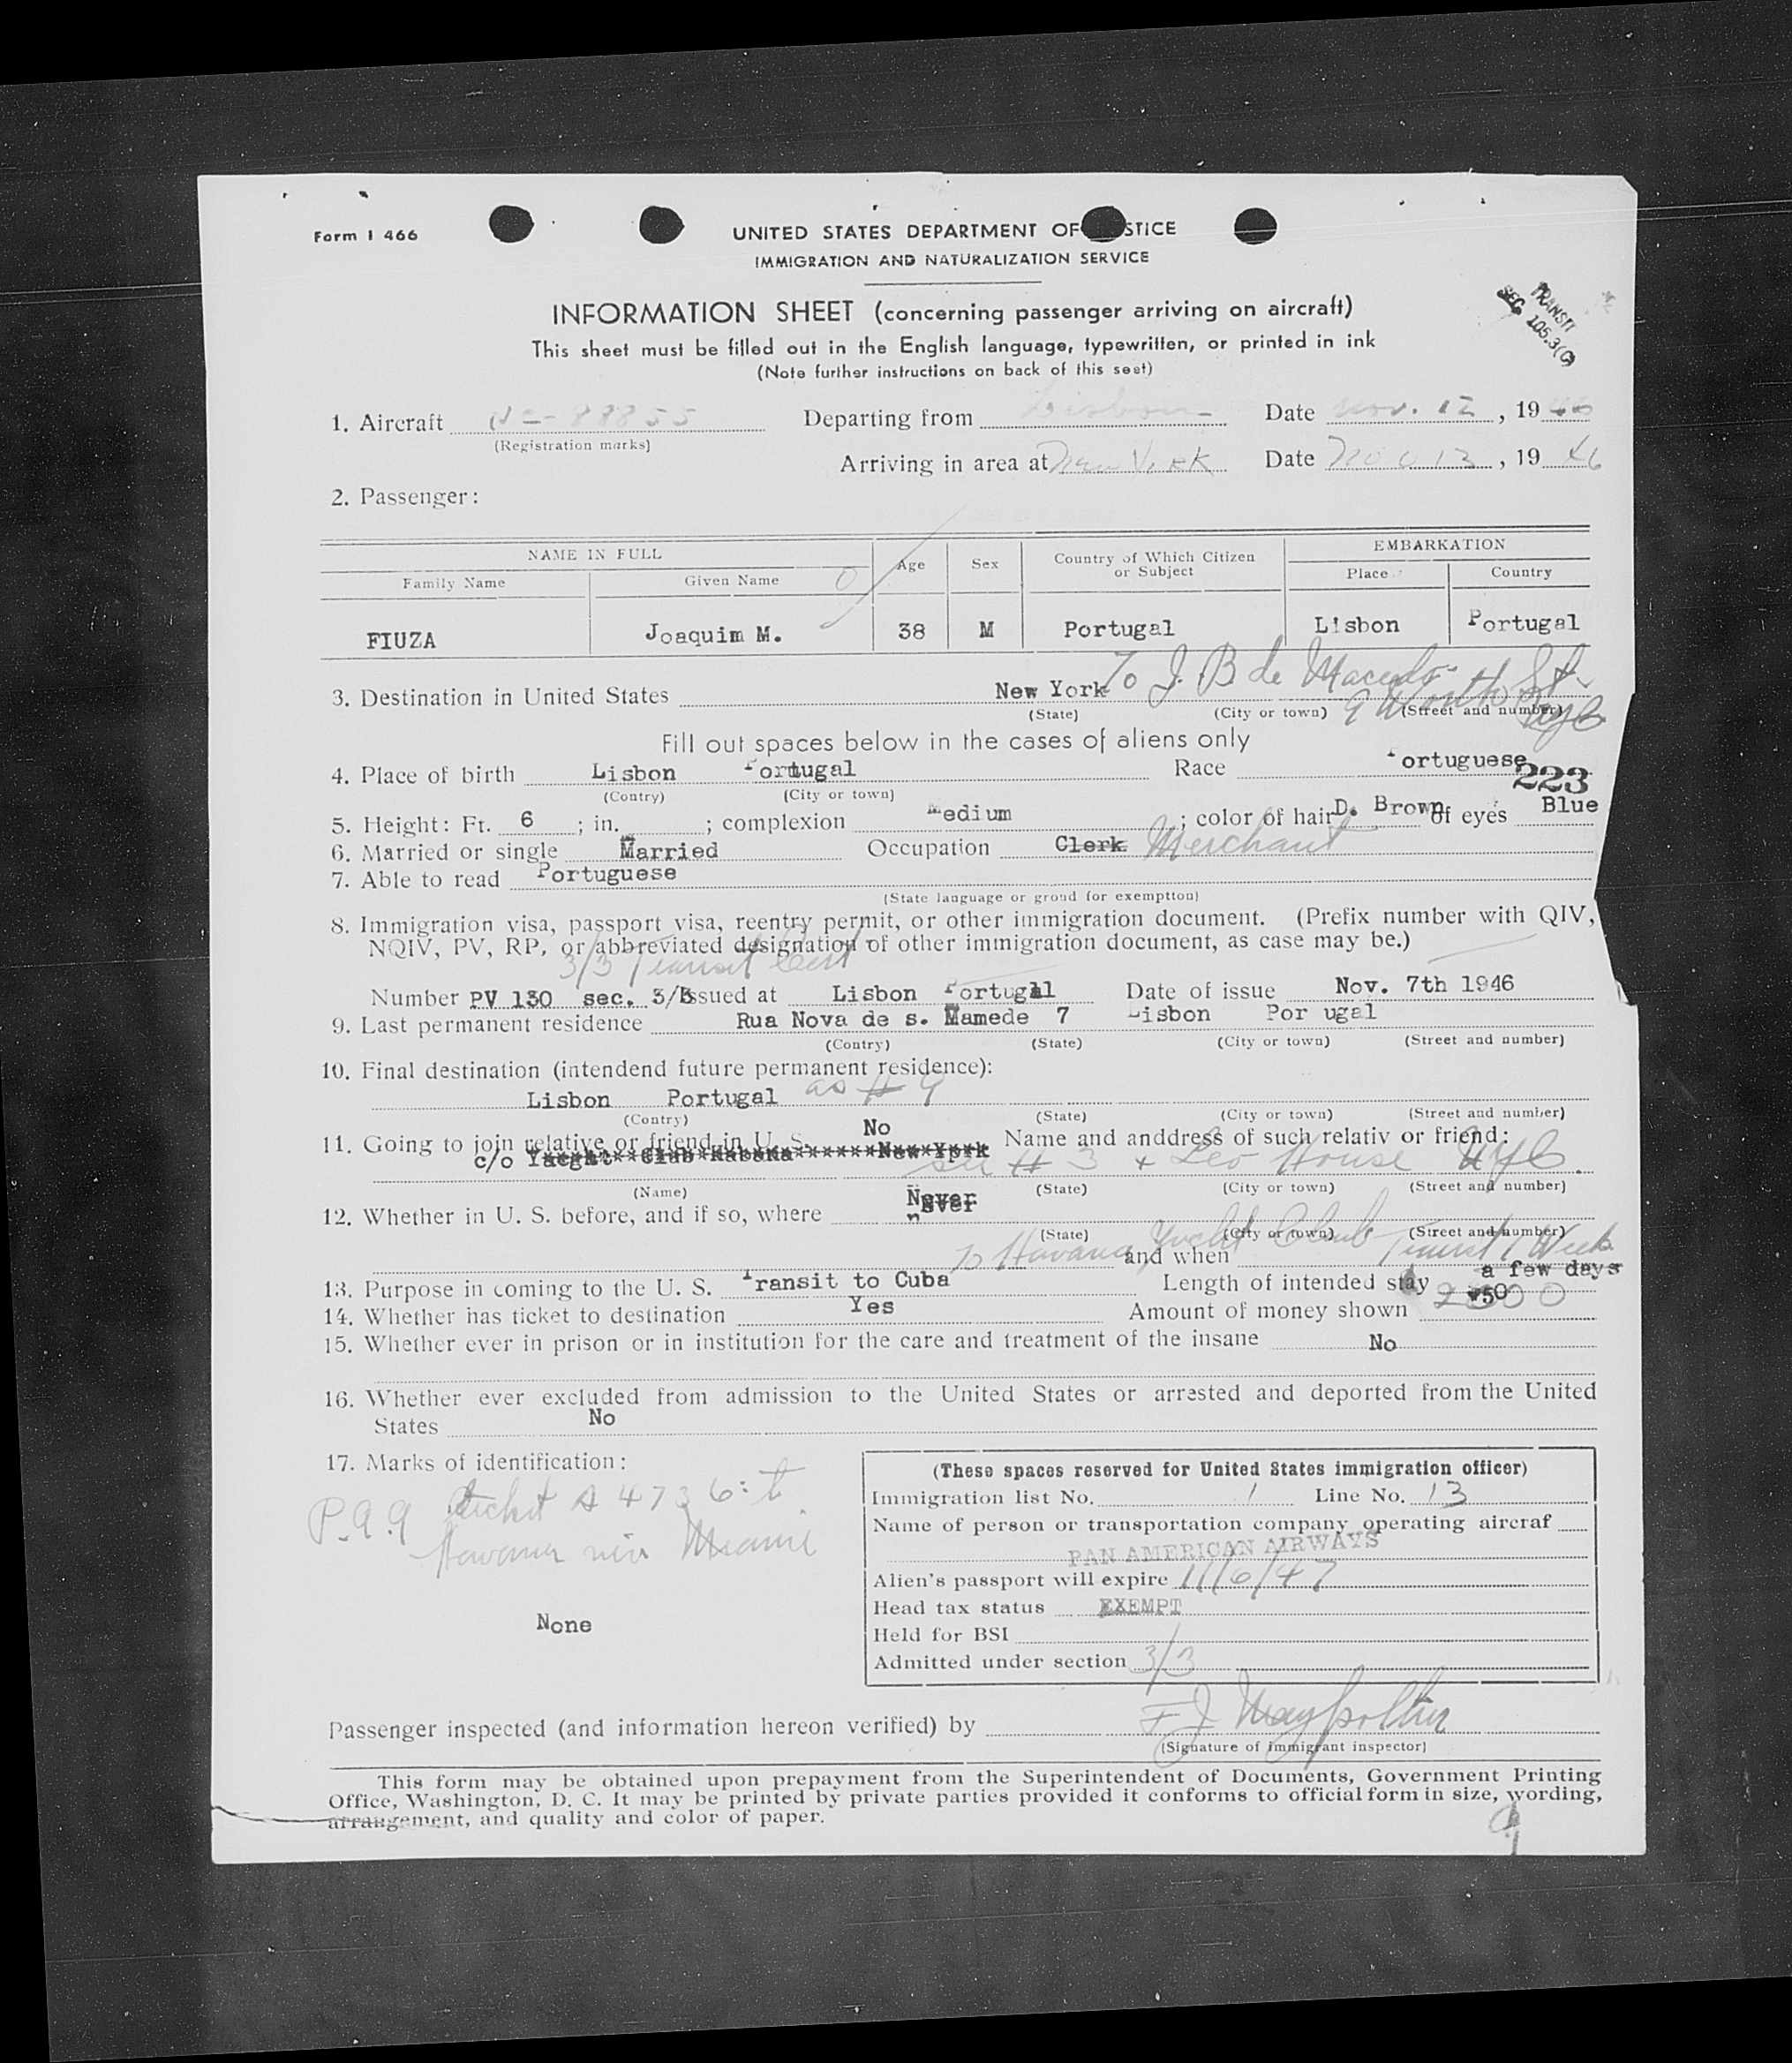 Form I 466
UNITED STATES DEPARTMENT OF STICE
IMMIGRATION AND NATURALIZATION SERVICE
INFORMATION SHEET (concerning passenger arriving on aircraft)
This sheet must be filled out in the English language, typewritten, or printed in ink
(Note further instructions on back of this seet)
TRANSIT
SEC. 105.3(G)
1. Aircraft NC-88855 Departing from Lisbon Date Nov. 12, 1946
(Registration marks)
Arriving in area at New York Date Nov 13, 1946
2. Passenger:
NAME IN FULL Age Sex Country of Which Citizen or Subject EMBARKATION
Family Name Given Name Place Country
FIUZA Joaquim M. 38 M Portugal Lisbon Portugal
3. Destination in United States New York To J. B de Macedo
9 Worth St NYC
(State) (City or town) (Street and number)
Fill out spaces below in the cases of aliens only
4. Place of birth Lisbon Portugal Race Portuguese
(Contry) (City or town)
223
5. Height: Ft. 6 ; in. ; complexion Medium ; color of hair D. Brown of eyes Blue
6. Married or single Married Occupation Clerk Merchant
7. Able to read Portuguese
(State language or groud for exemption)
8. Immigration visa, passport visa, reentry permit, or other immigration document. (Prefix number with QIV,
NQIV, PV, RP, or abbreviated designation of other immigration document, as case may be.)
3/3 Transit Cert
Number PV 130 sec. 3/3 Issued at Lisbon Portugal Date of issue Nov. 7th 1946
9. Last permanent residence Rua Nova de s. Mamede 7 Lisbon Por ugal
(Contry) (State) (City or town) (Street and number)
10. Final destination (intendend future permanent residence):
Lisbon Portugal as # 9
(Contry) (State) (City or town) (Street and number)
11. Going to join relative or friend in U. S. No Name and anddress of such relativ or friend:
c/o Yacght**Club*Habana******New*York see # 3 + Leo House NYC.
(Name) (State) (City or town) (Street and number)
12. Whether in U. S. before, and if so, where Never
(State) (City or town) (Street and number)
To Havana Yacht Club and when Transit 1 Week
13. Purpose in coming to the U. S. Transit to Cuba Length of intended stay a few days
14. Whether has ticket to destination Yes Amount of money shown
15. Whether ever in prison or in institution for the care and treatment of the insane No
16. Whether ever excluded from admission to the United States or arrested and deported from the United
States No
17. Marks of identification:
ticket A 4736: to
Havana via Miami
None
(These spaces reserved for United States immigration officer)
Immigration list No. 1 Line No. 13
Name of person or transportation company operating aircraf
PAN AMERICAN AIRWAYS
Alien's passport will expire 11/6/47
Head tax status EXEMPT
Held for BSI
Admitted under section 3/3
Passenger inspected (and information hereon verified) by
(Signature of immigrant inspector)
This form may be obtained upon prepayment from the Superintendent of Documents, Government Printing
Office, Washington, D. C. It may be printed by private parties provided it conforms to official form in size, wording,
arrangement, and quality and color of paper.